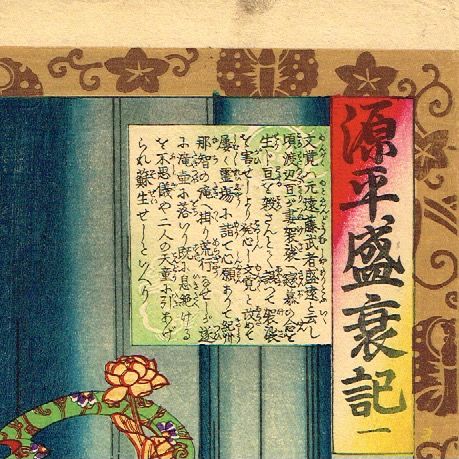 源平盛衰記 一
文覚ハ元遠藤武者盛遠と云し
頃渡辺亘が妻袈裟へ恋慕の念を
生じ亘を殺さんとして袈裟
を害せしより発心し文覚と改めて
屡霊場に詣で心願ありて紀州
那智の滝へ掛り荒行をなせしが遂
に滝壺に落いり既に息絶ける
を不思議や二人の天童に引あげ
られ蘇生せしといへり